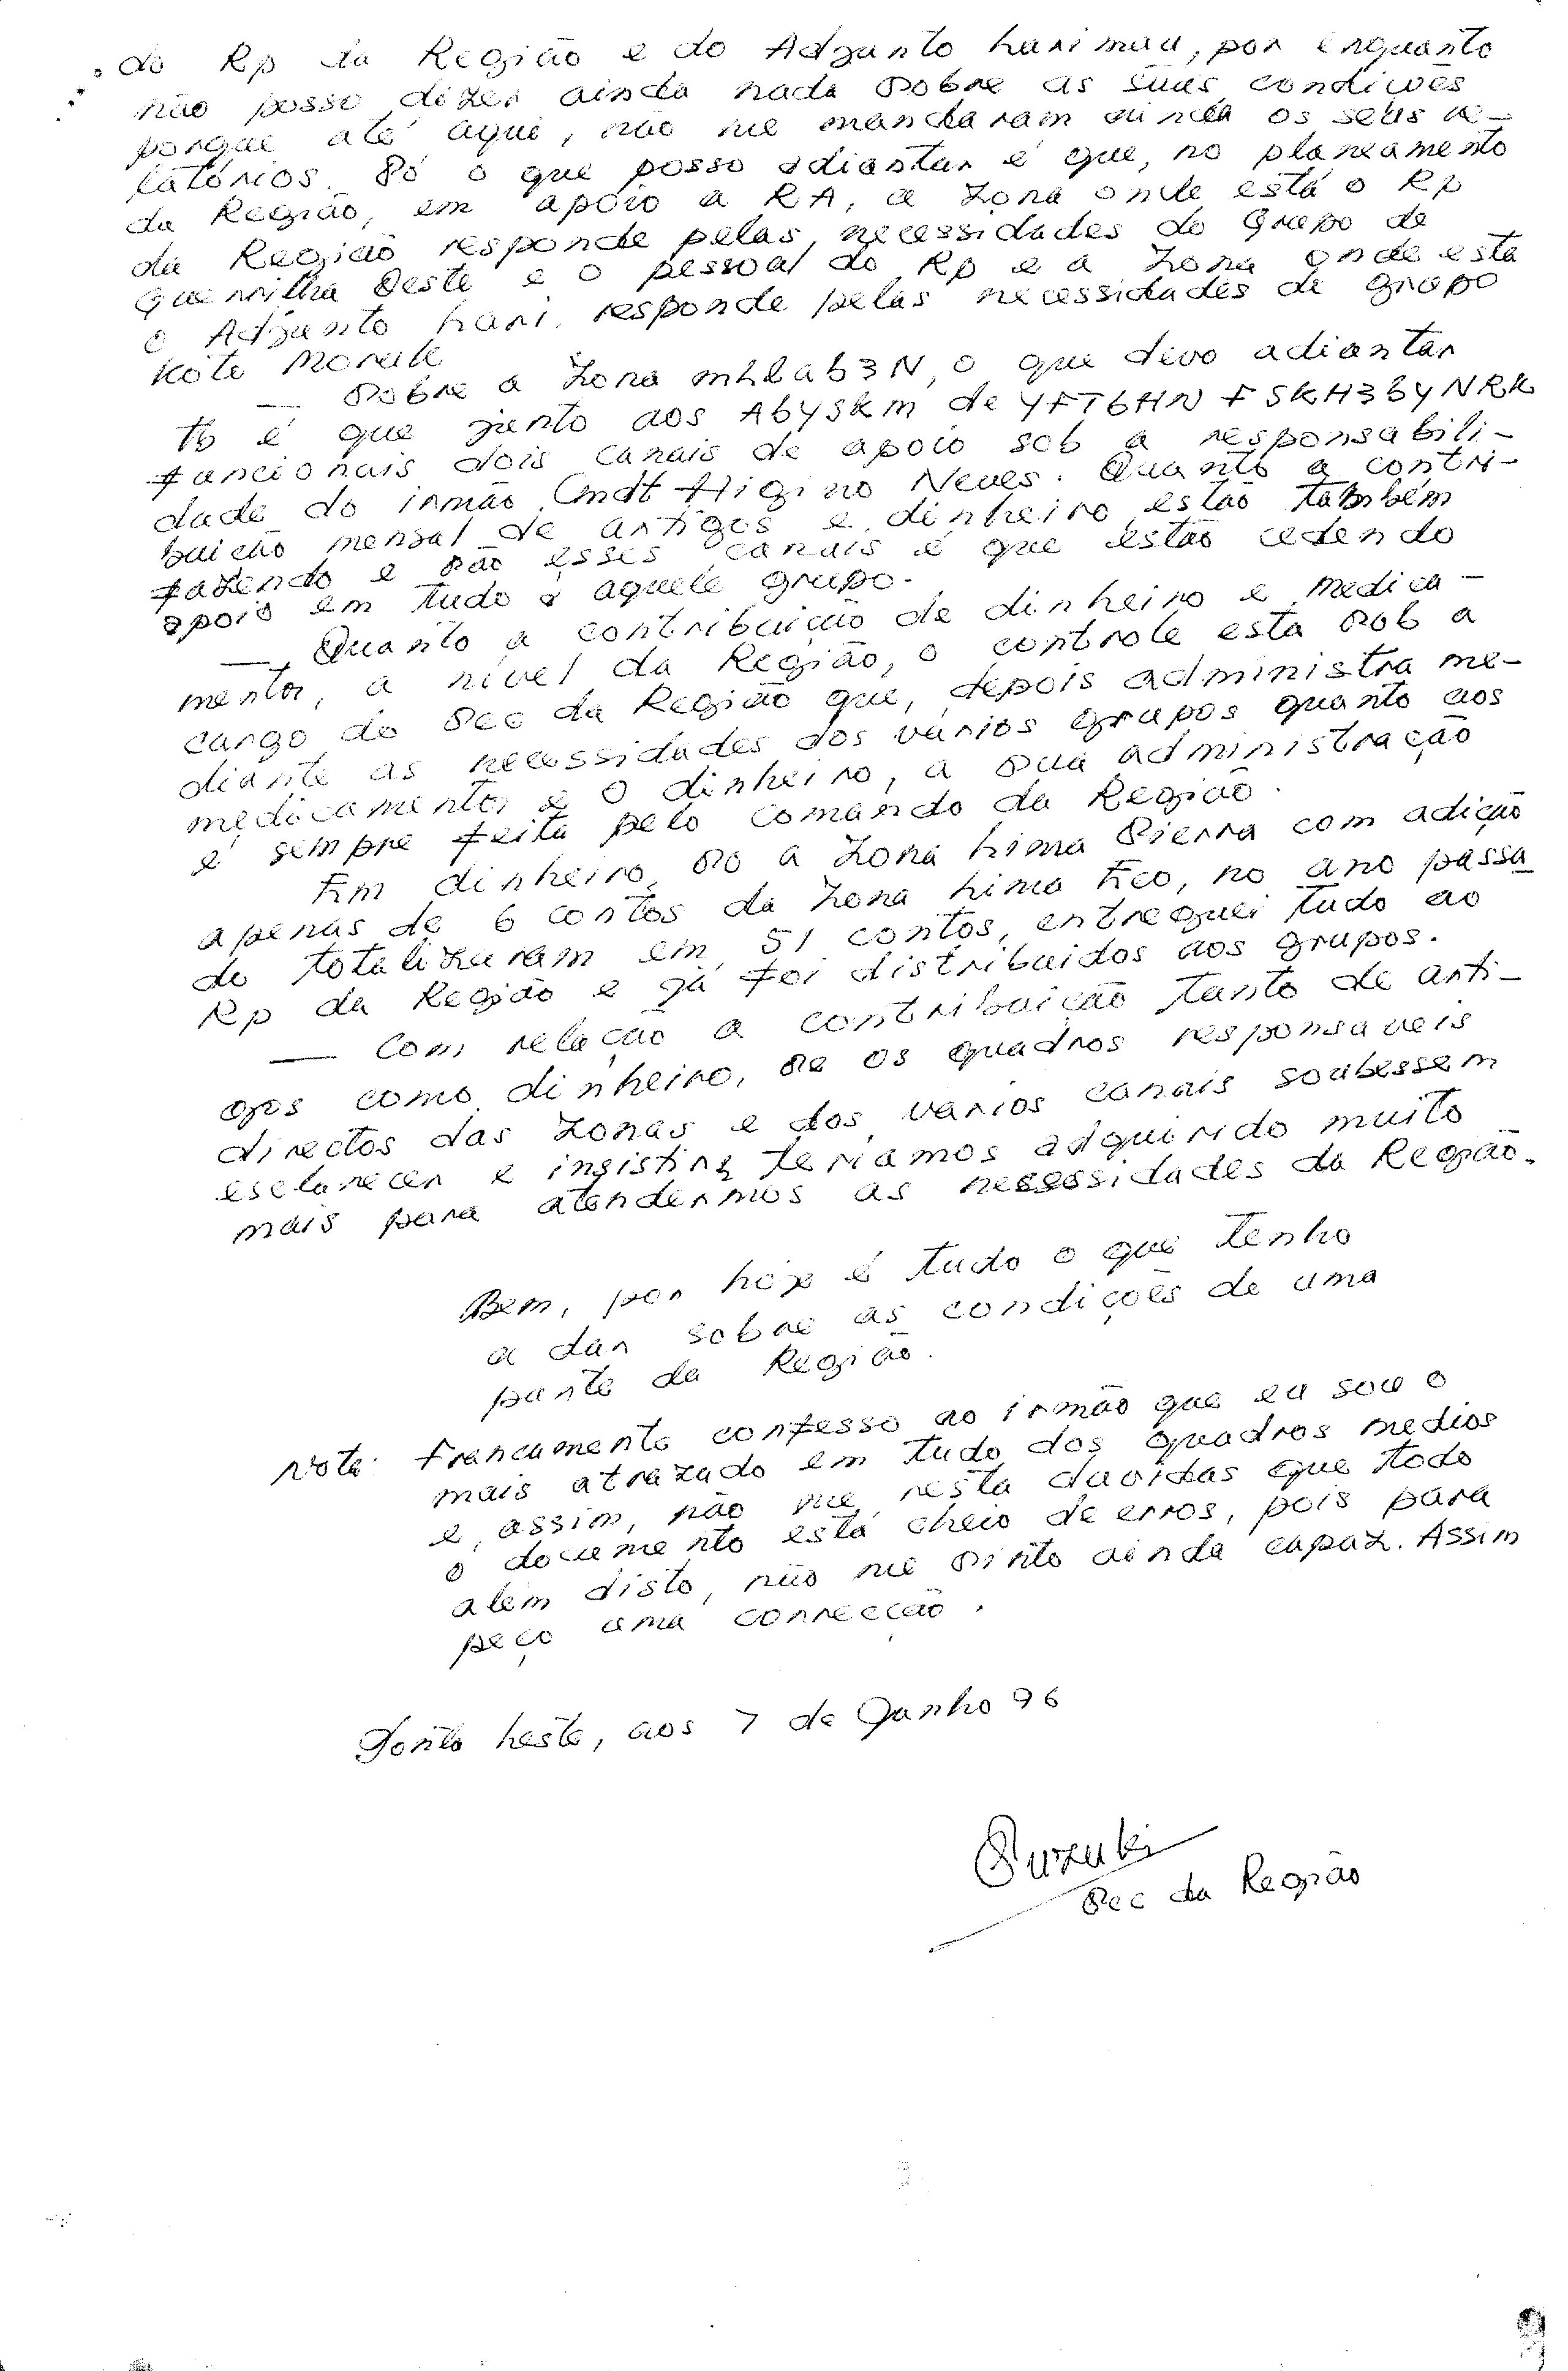 do Rp da Região e do Adjunto harimau, por enquanto
não posso dizer ainda nada sobre as suas condições
porque até aqui, não me mandaram ainda os seus re-
latórios. Só o que posso adiantar é que, no planeamento
da Região, em apoio a RA, a zona onde está o Rp
da Região responde pelas necessidades do Grupo de
Guerrilha Oeste e o pessoal do Rp e a zona onde está
o Adjunto hari. responde pelas necessidades de grupo
Kote Morale
— Sobre a zona mhlab3N, o que devo adiantar
tb é que junto aos Ab4skm de 4FT6HN FSKH3b4NRK
funcionais dois canais de apoio sob a responsabili-
dade do irmão Cmdt Higino Neves. Quanto a contri-
buição mensal de artigos e dinheiro estão também
fazendo e são esses canais é que estão cedendo
apoio em tudo à aquele grupo.
— Quanto a contribuição de dinheiro e medica-
mentos, a nível da Região, o controle está sob a
cargo do Sec da Região que, depois administra me-
diante as necessidades dos vários grupos quanto aos
medicamentos e o dinheiro, a sua administração
é sempre feita pelo Comando da Região.
Em dinheiro, só a zona hima Sierra com adição
apenas de 6 contos da zona hima Eco, no ano passa
do totalizaram em 51 contos, entreguei tudo ao
Rp da Região e já foi distribuidos aos grupos.
— Com relação a contribuição tanto de arti-
gos como dinheiro, se os quadros responsaveis
directos das zonas e dos varios canais soubessem
esclarecer e insistir, teriamos adquirido muito
mais para atendermos as necessidades da Região.
Bem, por hoje é tudo o que tenho
a dar sobre as condições de uma
parte da Região.
Nota: Francamente confesso ao irmão que eu sou o
mais atrazado em tudo dos quadros medios
e, assim, não me resta duvidas que todo
o documento está cheio de erros, pois para
além disto, não me sinto ainda capaz. Assim
peço uma correcção.
Ponto heste, aos 7 de Junho 96
Suzuki
Sec da Região